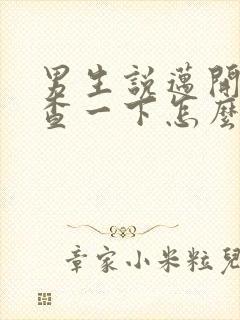 男生說邁開
查一下怎麼
章家小米粒兒